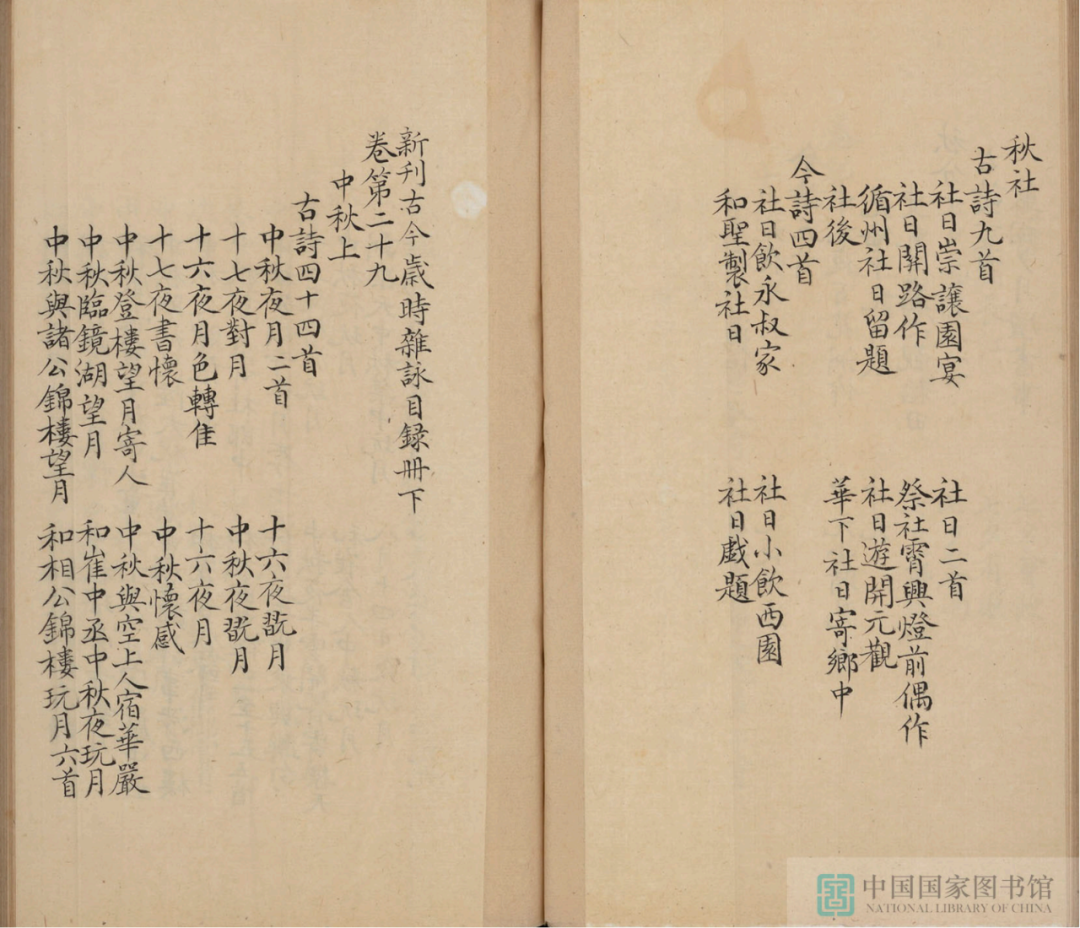 秋社
古詩九首
社日崇讓園宴
社日二首
社日關路作
祭社霄興燈前偶作
循州社日留題
社日遊開元觀
社後
華下社日寄鄉中
今詩四首
社日飲永叔家
社日小飲西園
和聖製社日
社日戲題
新刊古今歲時雜詠目録冊下
卷第二十九
中秋上
古詩四十四首
中秋夜月二首
十六夜翫月
十七夜對月
中秋夜翫月
十六夜月色轉佳
十六夜月
十七夜書懷
中秋懷感
中秋登樓望月寄人
中秋與空上人宿華嚴
中秋臨鏡湖望月
和崔中丞中秋夜玩月
中秋與諸公錦樓望月
和相公錦樓玩月六首
中国国家图书馆
NATIONAL LIBRARY OF CHINA